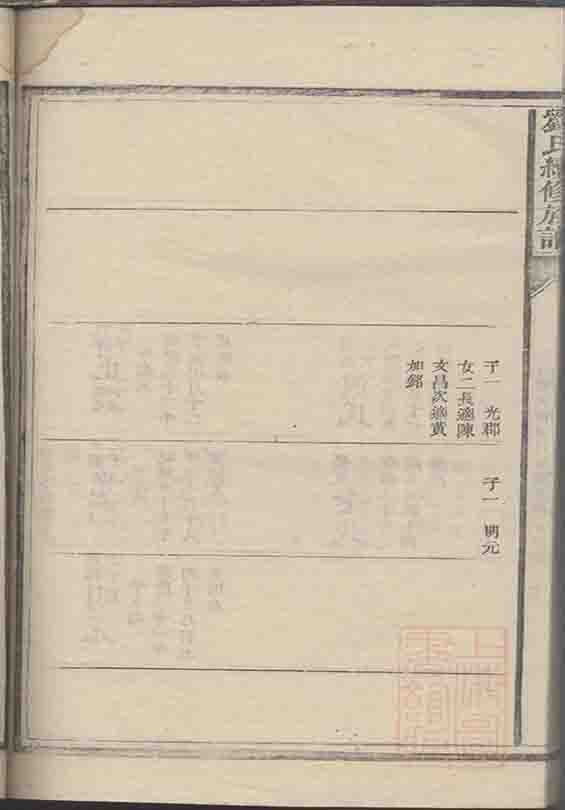 劉氏續修族譜
子一 光郡
女二長適陳
文昌次適黃
加郷
子一 開元